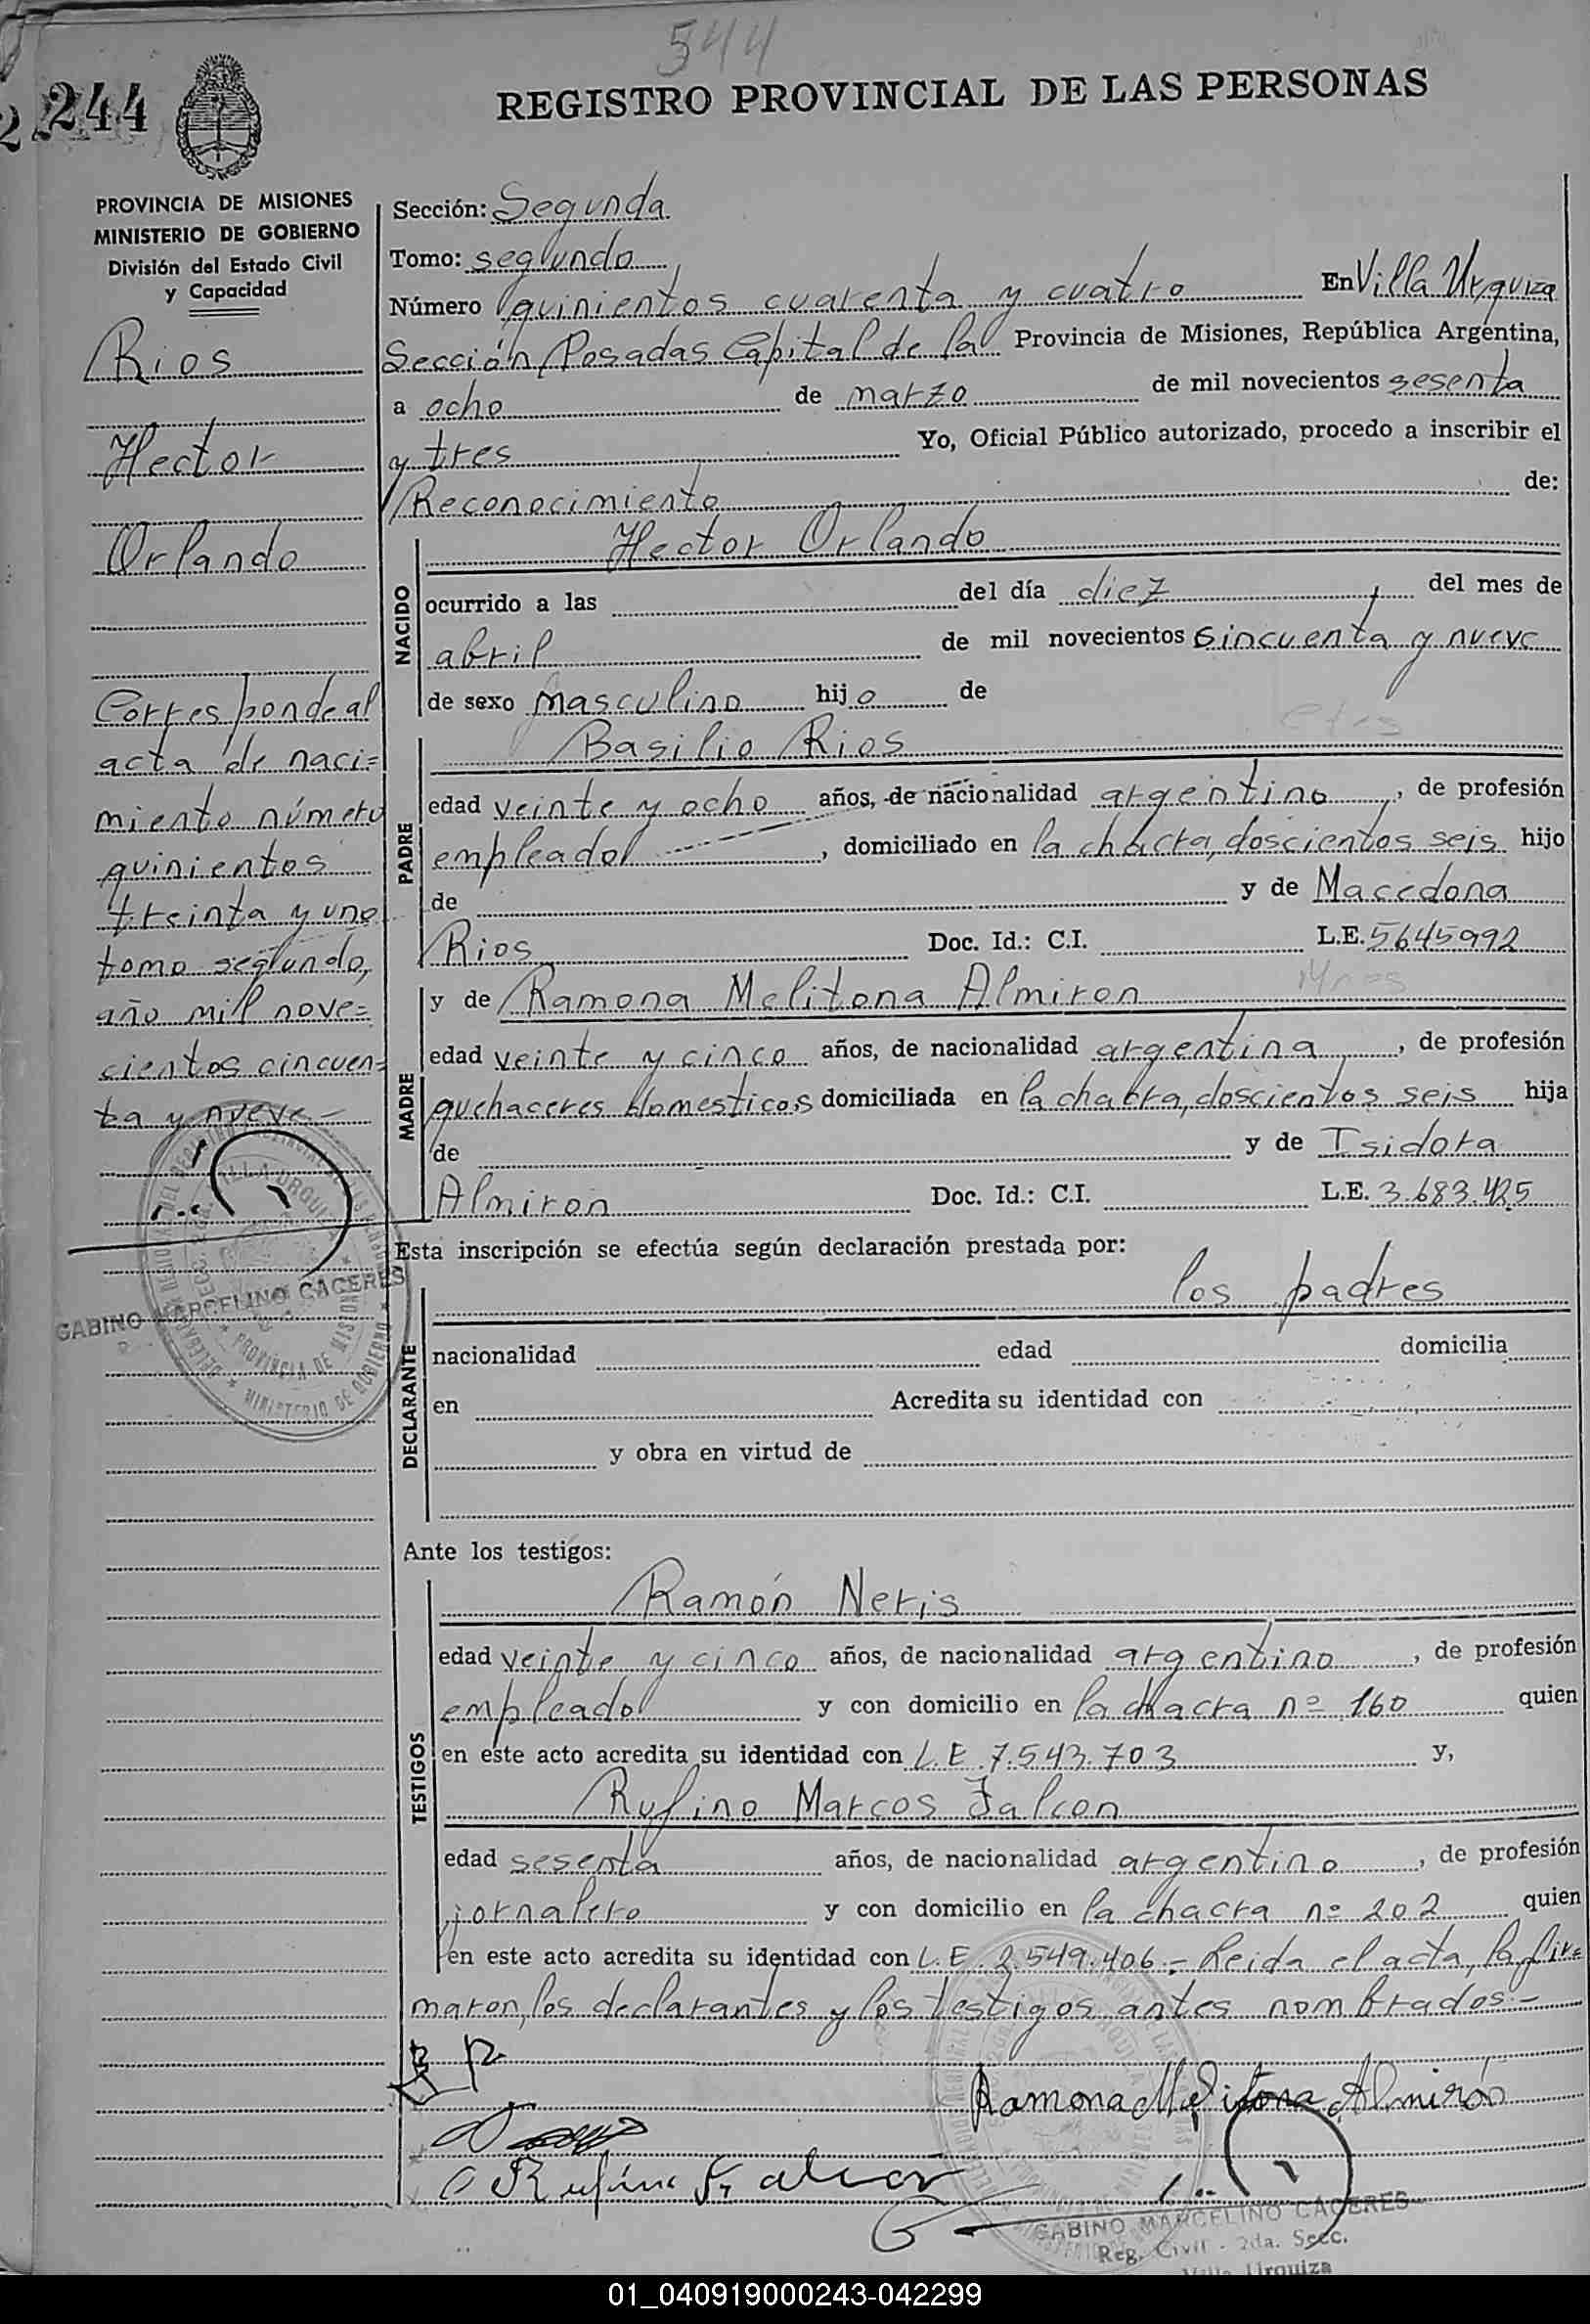 544
244
REGISTRO PROVINCIAL DE LAS PERSONAS
PROVINCIA DE MISIONES
MINISTERIO DE GOBIERNO
División del Estado Civil
y Capacidad
Rios
Hector
Orlando
Corresponde al
acta de naci=
miento número
quinientos
treinta y uno
tomo segundo,
año mil nove=
cientos cincuen=
ta y nueve.-
GABINO MARCELINO CACERES
Sección: Segunda
Tomo: segundo
Número quinientos cuarenta y cuatro En Villa Urquiza
Sección Posadas Capital de la Provincia de Misiones, República Argentina,
a ocho de marzo de mil novecientos sesenta
y tres Yo, Oficial Público autorizado, procedo a inscribir el
Reconocimiento de:
NACIDO
Hector Orlando
ocurrido a las del día diez del mes de
abril de mil novecientos cincuenta y nueve
de sexo masculino hijo de
PADRE
Basilio Rios
edad veinte y ocho años, de nacionalidad argentino, de profesión
empleado, domiciliado en la chacra, doscientos seis hijo
de y de Macedona
Rios Doc. Id.: C.I. L.E. 5645992
MADRE
y de Ramona Melitona Almiron
edad veinte y cinco años, de nacionalidad argentina, de profesión
quehaceres domesticos domiciliada en la chacra, doscientos seis hija
de y de Isidora
Almiron Doc. Id.: C.I. L.E. 3.683.425
Esta inscripción se efectúa según declaración prestada por:
DECLARANTE
los padres
nacionalidad edad domicilia
en Acredita su identidad con
y obra en virtud de
Ante los testigos:
TESTIGOS
Ramón Neris
edad veinte y cinco años, de nacionalidad argentino, de profesión
empleado y con domicilio en la chacra nº 160 quien
en este acto acredita su identidad con L.E. 7.543.703 y,
Rufino Marcos Falcon
edad sesenta años, de nacionalidad argentino, de profesión
jornalero y con domicilio en la chacra nº 202 quien
en este acto acredita su identidad con L.E. 2.549.406.- Leida el acta, la fir=
maron, los declarantes y los testigos antes nombrados.-
B R
Ramona Melitona Almirón
Rufino Falcon
GABINO MARCELINO CACERES
Reg. Civil - 2da. Secc.
Villa Urquiza
01_040919000243-042299